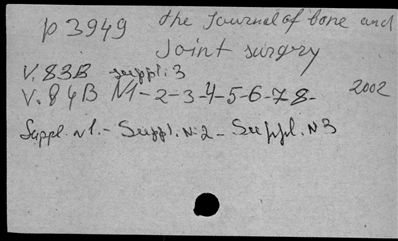 p 3949 the Journal of bone and
Joint surgery
V.83B suppl. 3
V.84B N1-2-3-4-5-6-7-8- 2002
Suppl. N1. - Suppl. N2 - Suppl. N3